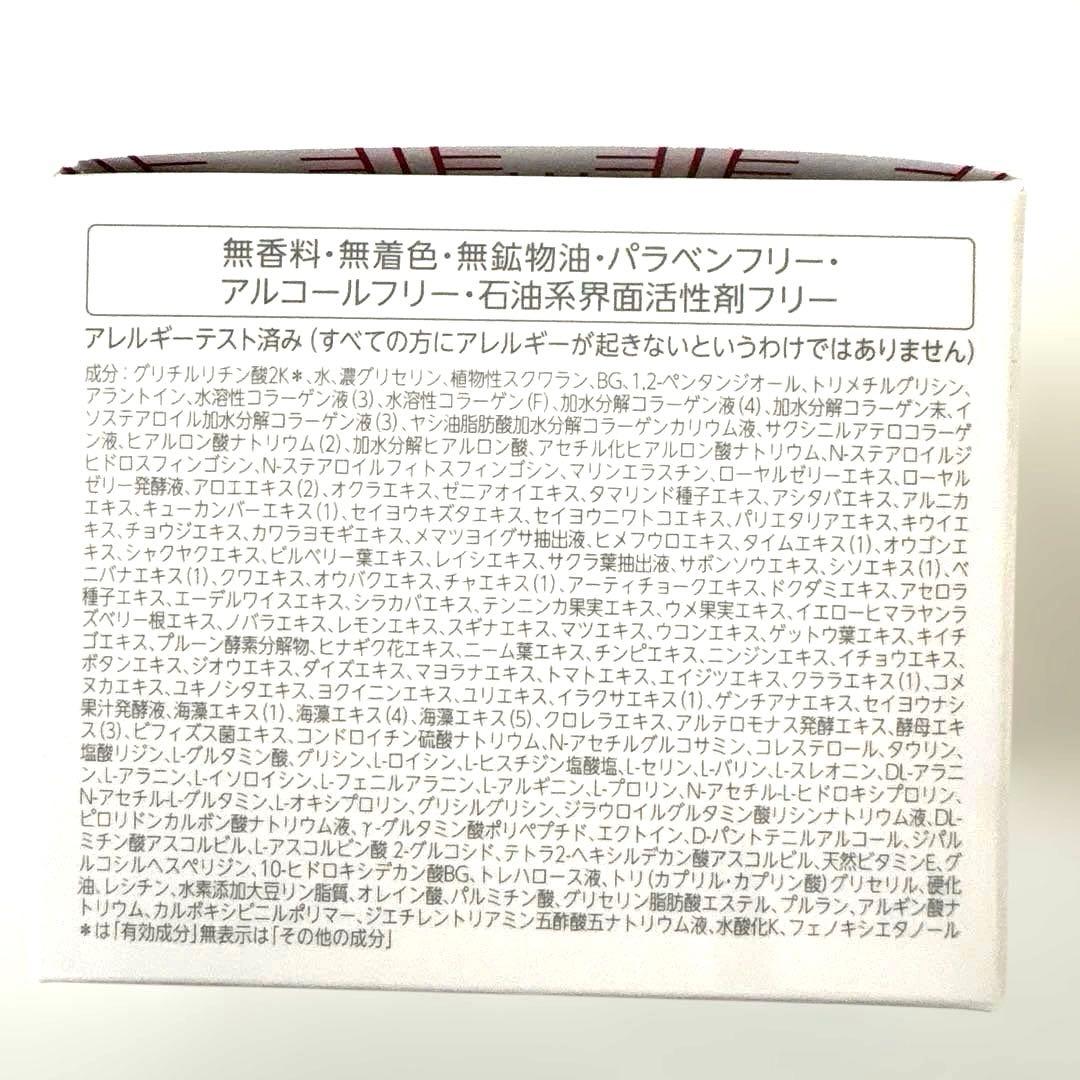 無香料・無着色・無鉱物油・パラベンフリー・
アルコールフリー・石油系界面活性剤フリー
アレルギーテスト済み(すべての方にアレルギーが起きないというわけではありません)
成分:グリチルリチン酸2K*、水、濃グリセリン、植物性スクワラン、BG、1,2-ペンタンジオール、トリメチルグリシン、
アラントイン、水溶性コラーゲン液(3)、水溶性コラーゲン(F)、加水分解コラーゲン液(4)、加水分解コラーゲン末、イ
ソステアロイル加水分解コラーゲン液(3)、ヤシ油脂肪酸加水分解コラーゲンカリウム液、サクシニルアテロコラーゲ
ン液、ヒアルロン酸ナトリウム(2)、加水分解ヒアルロン酸、アセチル化ヒアルロン酸ナトリウム、N-ステアロイルジ
ヒドロスフィンゴシン、N-ステアロイルフィトスフィンゴシン、マリンエラスチン、ローヤルゼリーエキス、ローヤル
ゼリー発酵液、アロエエキス(2)、オクラエキス、ゼニアオイエキス、タマリンド種子エキス、アシタバエキス、アルニカ
エキス、キューカンバーエキス(1)、セイヨウキズタエキス、セイヨウニワトコエキス、パリエタリアエキス、キウイエ
キス、チョウジエキス、カワラヨモギエキス、メマツヨイグサ抽出液、ヒメフウロエキス、タイムエキス(1)、オウゴンエ
キス、シャクヤクエキス、ビルベリー葉エキス、レイシエキス、サクラ葉抽出液、サボンソウエキス、シソエキス(1)、ベ
ニバナエキス(1)、クワエキス、オウバクエキス、チャエキス(1)、アーティチョークエキス、ドクダミエキス、アセロラ
種子エキス、エーデルワイスエキス、シラカバエキス、テンニンカ果実エキス、ウメ果実エキス、イエローヒマラヤンラ
ズベリー根エキス、ノバラエキス、レモンエキス、スギナエキス、マツエキス、ウコンエキス、ゲットウ葉エキス、キイチ
ゴエキス、プルーン酵素分解物、ヒナギク花エキス、ニーム葉エキス、チンピエキス、ニンジンエキス、イチョウエキス、
ボタンエキス、ジオウエキス、ダイズエキス、マヨラナエキス、トマトエキス、エイジツエキス、クララエキス(1)、コメ
ヌカエキス、ユキノシタエキス、ヨクイニンエキス、ユリエキス、イラクサエキス(1)、ゲンチアナエキス、セイヨウナシ
果汁発酵液、海藻エキス(1)、海藻エキス(4)、海藻エキス(5)、クロレラエキス、アルテロモナス発酵エキス、酵母エキ
ス(3)、ビフィズス菌エキス、コンドロイチン硫酸ナトリウム、N-アセチルグルコサミン、コレステロール、タウリン、
塩酸リジン、L-グルタミン酸、グリシン、L-ロイシン、L-ヒスチジン塩酸塩、L-セリン、L-バリン、L-スレオニン、DL-アラニ
ン、L-アラニン、L-イソロイシン、L-フェニルアラニン、L-アルギニン、L-プロリン、N-アセチル-L-ヒドロキシプロリン、
N-アセチル-L-グルタミン、L-オキシプロリン、グリシルグリシン、ジラウロイルグルタミン酸リシンナトリウム液、DL-
ピロリドンカルボン酸ナトリウム液、γ-グルタミン酸ポリペプチド、エクトイン、D-パントテニルアルコール、ジパル
ミチン酸アスコルビル、L-アスコルビン酸 2-グルコシド、テトラ2-ヘキシルデカン酸アスコルビル、天然ビタミンE、グ
ルコシルヘスペリジン、10-ヒドロキシデカン酸BG、トレハロース液、トリ(カプリル・カプリン酸)グリセリル、硬化
油、レシチン、水素添加大豆リン脂質、オレイン酸、パルミチン酸、グリセリン脂肪酸エステル、プルラン、アルギン酸ナ
トリウム、カルボキシビニルポリマー、ジエチレントリアミン五酢酸五ナトリウム液、水酸化K、フェノキシエタノール
*は「有効成分」無表示は「その他の成分」